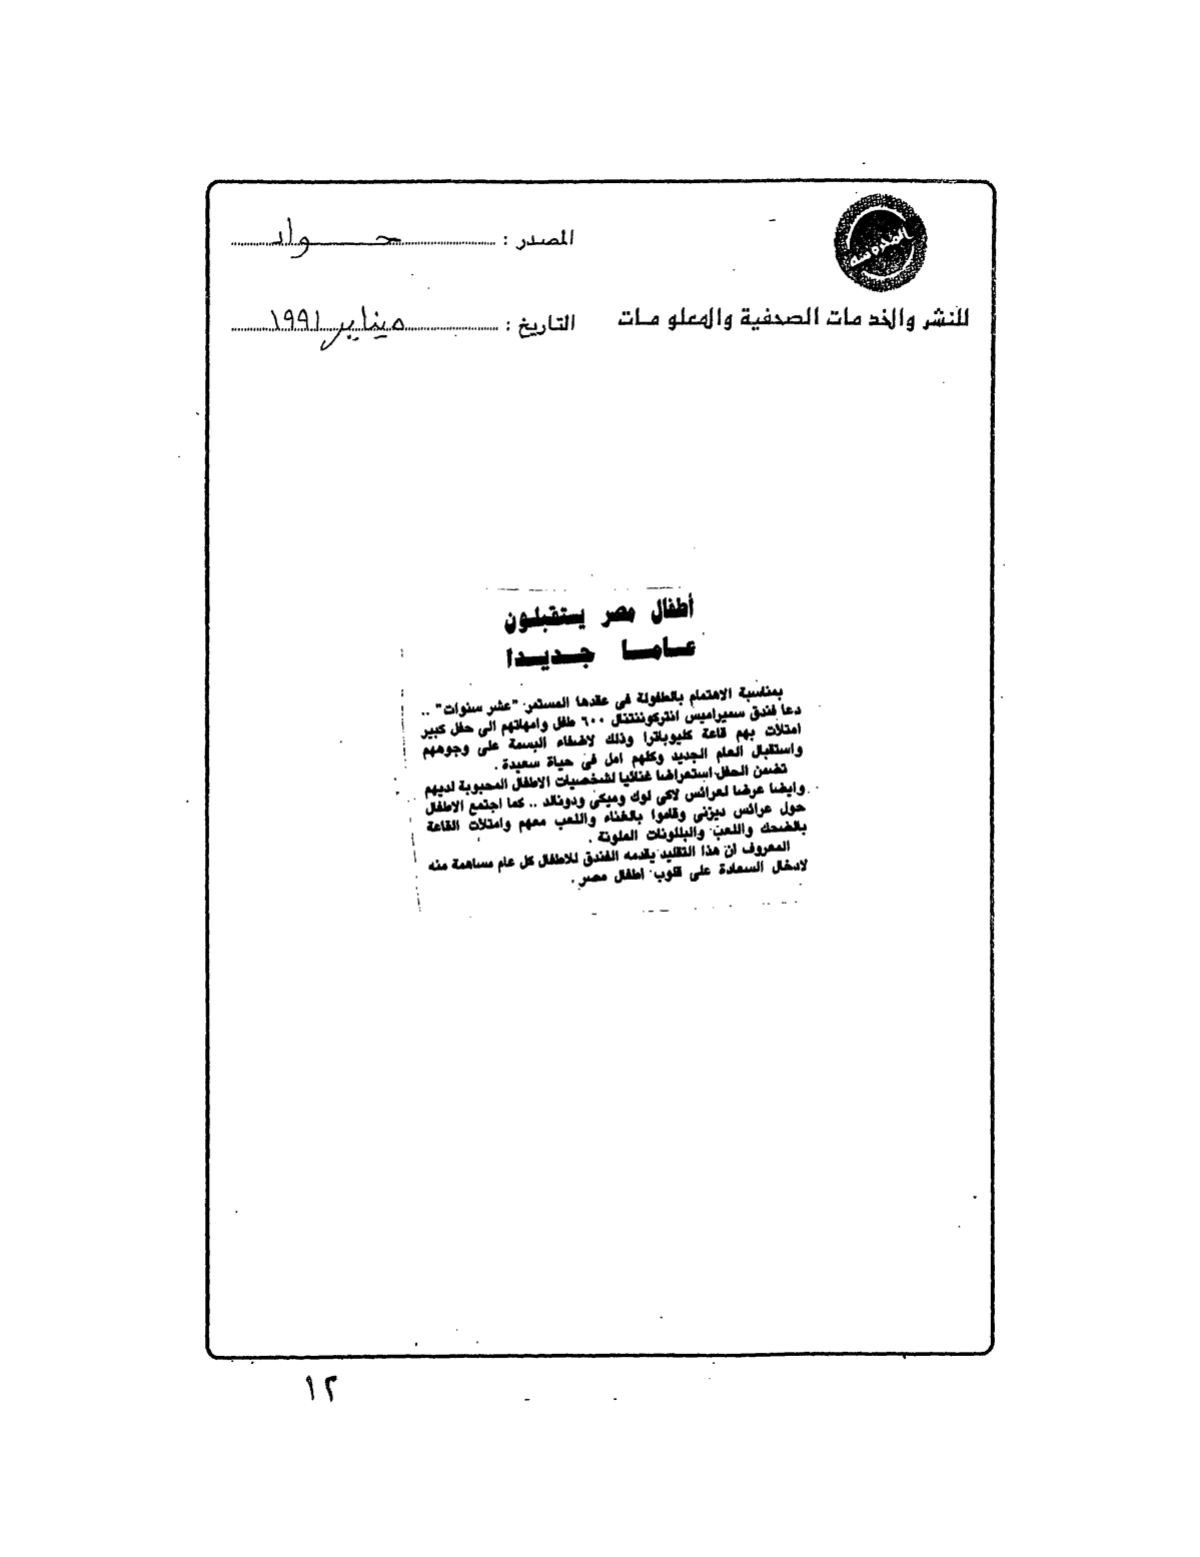 المحروسة
للنشر والخدمات الصحفية والمعلومات
المصدر : حواء
التاريخ : ٥ يناير ١٩٩١
أطفال مصر يستقبلون
عاما جديدا
بمناسبة الاهتمام بالطفولة فى عقدها المستمر "عشر سنوات" ..
دعا فندق سميراميس انتركونتننتال ٦٠٠ طفل وامهاتهم الى حفل كبير
امتلأت بهم قاعة كليوباترا وذلك لاضفاء البسمة على وجوههم
واستقبال العام الجديد وكلهم امل فى حياة سعيدة .
تضمن الحفل استعراضا غنائيا لشخصيات الاطفال المحبوبة لديهم
وايضا عرضا لعرائس لاكى لوك وميكى ودونالد .. كما اجتمع الاطفال
حول عرائس ديزنى وقاموا بالغناء واللعب معهم وامتلأت القاعة
بالضحك واللعب والبللونات الملونة .
المعروف ان هذا التقليد يقدمه الفندق للاطفال كل عام مساهمة منه
لادخال السعادة على قلوب اطفال مصر .
١٢